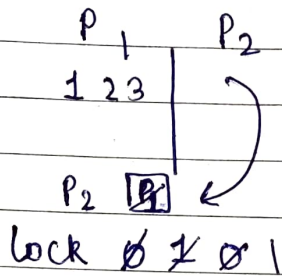 P1 P2
1 2 3
P2 P1
lock 0 1 0 1